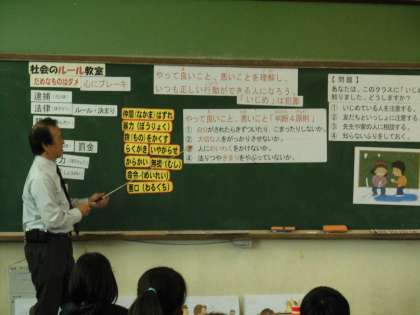 社会のルール教室
だめなものはダメ 心にブレーキ
逮捕
法律
ルール・決まり
罰金
仲間(なかま)はずれ
暴力(ぼうりょく)
物(もの)をかくす
らくがき いやがらせ
からかい 無視(むし)
命令(めいれい)
悪口(わるくち)
やって良いこと、悪いことを理解し、
いつも正しい行動ができる人になろう。
「いじめ」は犯罪
やって良いこと、悪いこと「判断4原則」
① 自分がされたらきずついたり、こまったりしないか。
② 大切な人をがっかりさせないか。
人にめいわくをかけないか。
④ 法りつやきまりをやぶっていないか。
【問題】
あなたは、このクラスに「いじ
知りました。どうしますか?
① いじめている人を注意する。
② 友だちといっしょに注意する
③ 先生や家の人に相談する。
④ 知らないふりをしておく。